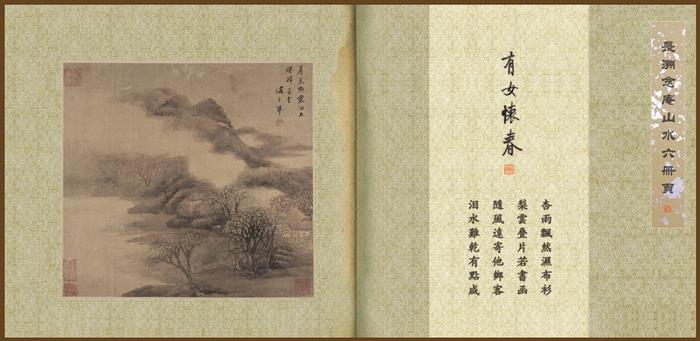 長淵念庵山水六冊頁
有女懷春
杏雨飄然濕布衫
梨雲疊片若書函
隨風遠寄他鄉客
泪水難乾有點咸